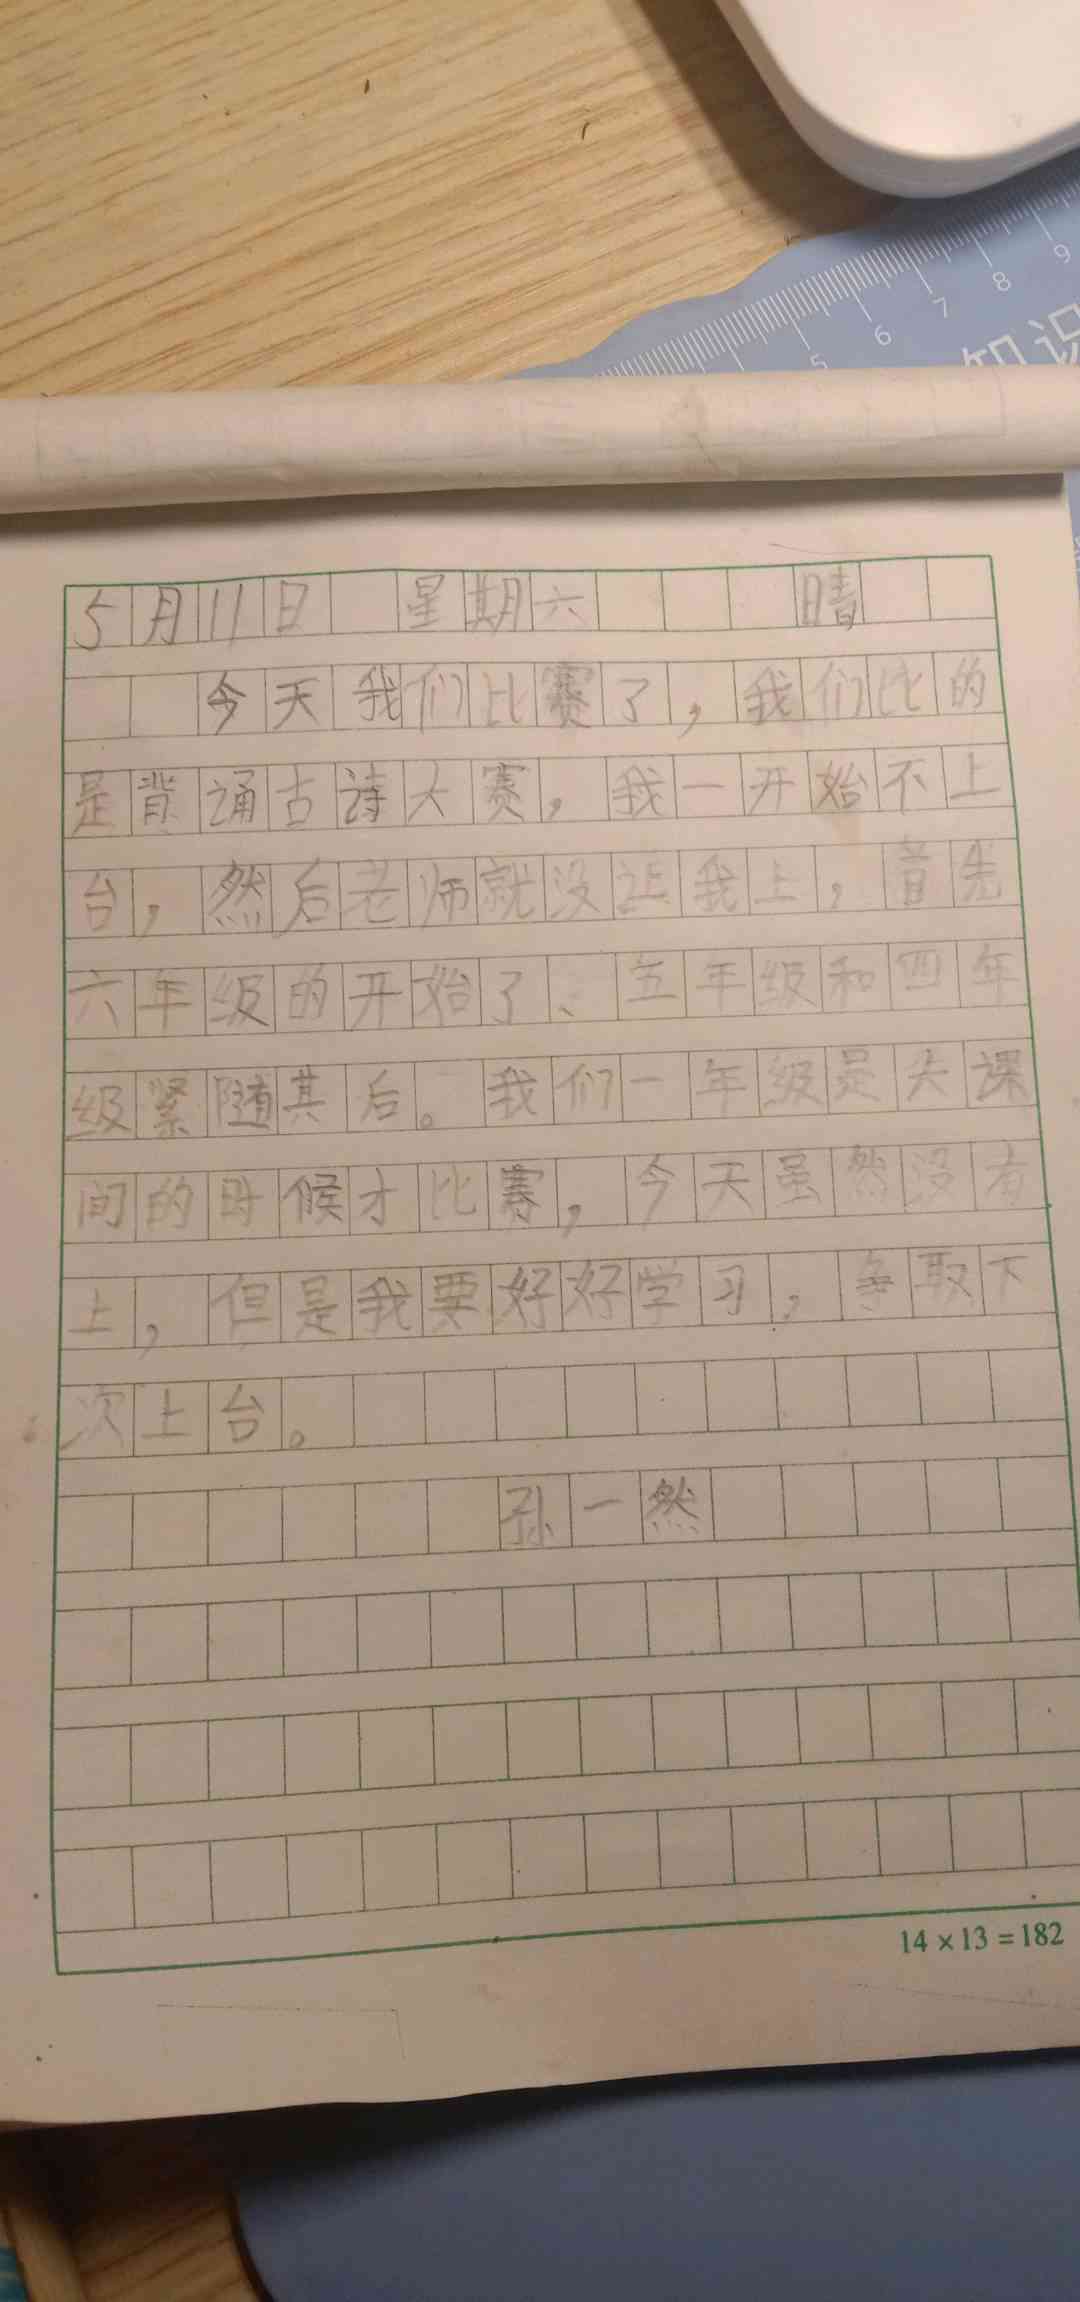 5 6 7 8 9
知识
5月11日 星期六 晴
今天我们比赛了,我们比的
是背诵古诗大赛,我一开始不上
台,然后老师就没让我上,首先
六年级的开始了、五年级和四年
级紧随其后。我们一年级是大课
间的时候才比赛,今天虽然没有
上,但是我要好好学习,争取下
次上台。
孙一然
14×13=182